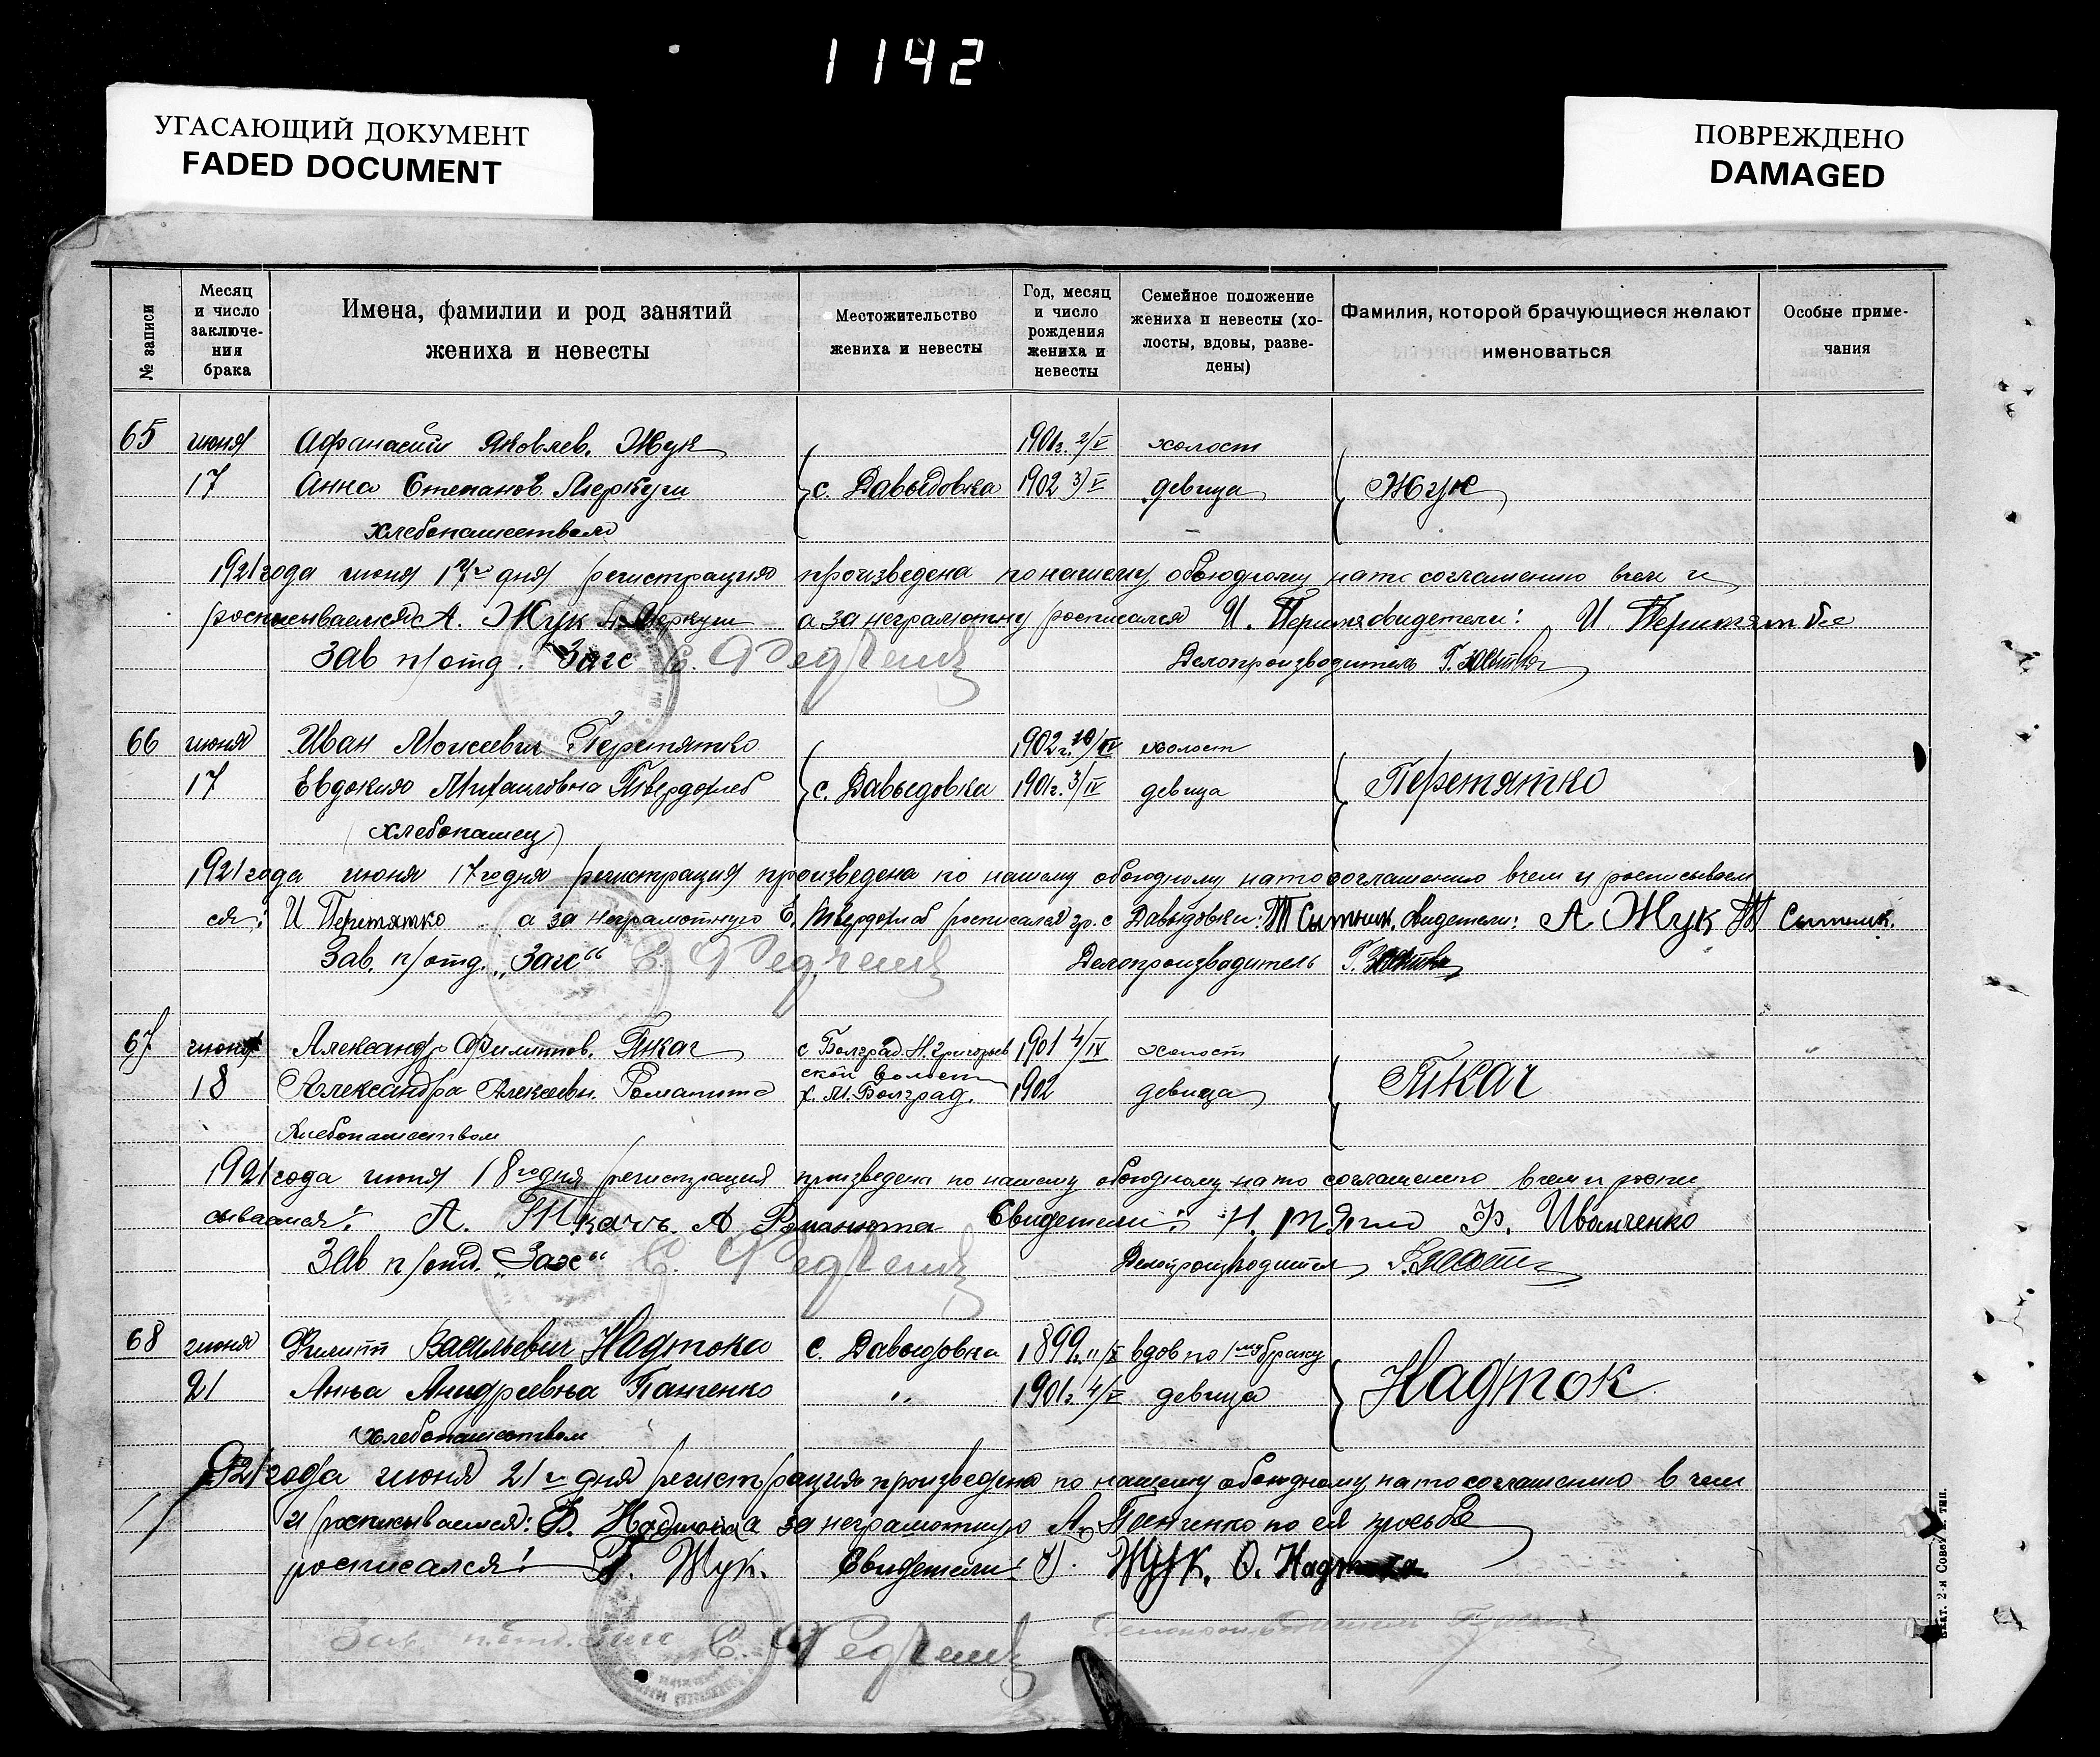 1142
УГАСАЮЩИЙ ДОКУМЕНТ
FADED DOCUMENT
ПОВРЕЖДЕНО
DAMAGED
№ записи
Месяц и число заключения брака
Имена, фамилии и род занятий жениха и невесты
Местожительство жениха и невесты
Год, месяц и число рождения жениха и невесты
Семейное положение жениха и невесты (холосты, вдовы, разведены)
Фамилия, которой брачующиеся желают именоваться
Особые примечания
65 июня Афанасий Яковлев. Жук 1901г. 2/V холост
17 Анна Степанов. Меркуш с. Давыдовка 1902 3/V девица Жук
хлебопашеством
1921 года июня 17го дня регистрация произведена по нашему обоюдному на то соглашению в чем и
росписываемся А. Жук А. Меркуш а за неграмотну росписался И. свидетели: И.
Зав п/отд. Загс Делопроизводитель Г.
66 июня Иван Моисеевич Перетятко 1902г. 10/IV холост
17 Евдокия Михаиловна Твердохлеб с. Давыдовка 1901г. 3/IV девица Перетятко
(хлебопашец)
1921 года июня 17го дня регистрация произведена по нашему обоюдному на то соглашению в чем и росписываем
ся: И Перетятко а за неграмотную Е. Твердохлеб росписался гр. с Давыдовки: Т Сытник. свидетели: А Жук Т Сытник.
Зав. п/отд. „Загс“ Делопроизводитель Г.
67 июня Александр Филиппов. Ткач с Болград. Н. Григорьев 1901 4/IV холост
ской волост
18 Александра Алексеевн. х. М. Болград. 1902 девица Ткач
Хлебопашеством
1921 года июня 18го дня регистрация произведена по нашему обоюдному на то соглашению в чем и роспи
сываемся: А. Ткачъ А Романюта Свидетели: Н. Ф. Иванченко
Зав п/отд. „Загс“ Делопроизводител
68 июня Филипп Васильевич Надтока с. Давыдовка 1899г. 11/X вдов по 1му браку
21 Анна Андреевна Панченко " 1901г. 4/V девица Надток
Хлебопашеством
1921 года июня 21го дня регистрация произведена по нашему обоюдному на то соглашению в чем
и росписываемся: Ф. Надтока а за неграмотную А. Панченко по ея просьбе
росписался: Г. Жук. Свидетели: Г. Жук. О. Надтока
Зав. п.отд. Загс